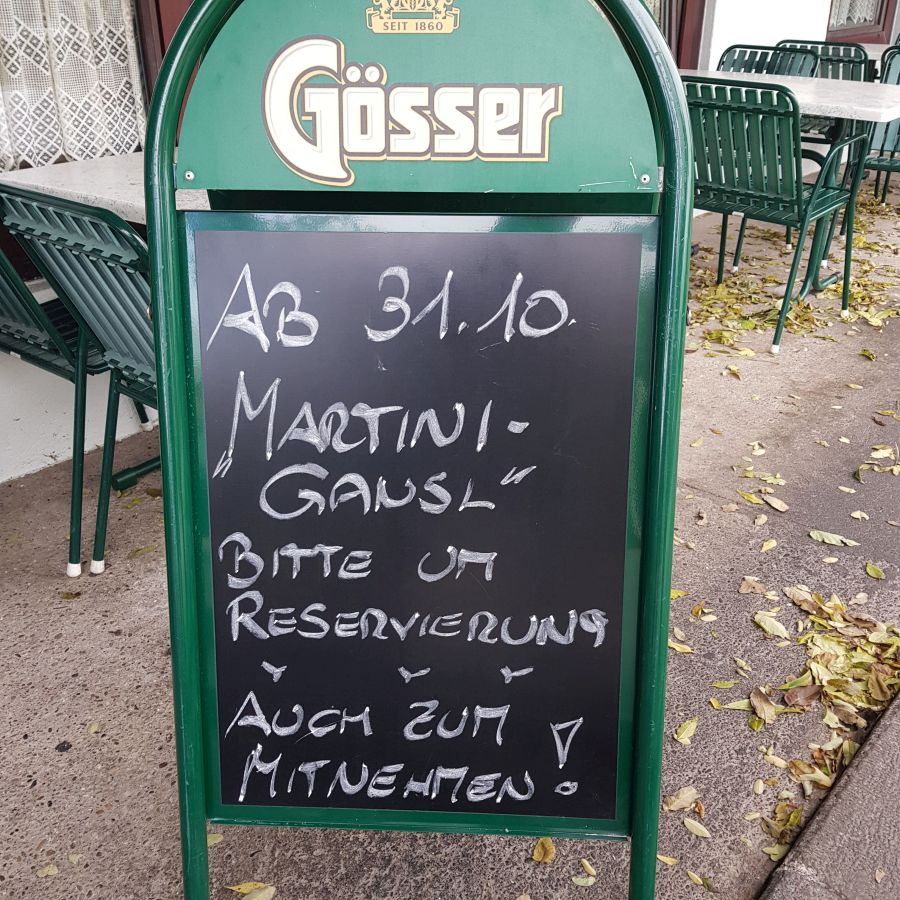 SEIT 1860
Gösser
AB 31.10.
„MARTINI-
GANSL“
BITTE UM
RESERVIERUNG
AUCH ZUM
MITNEHMEN!